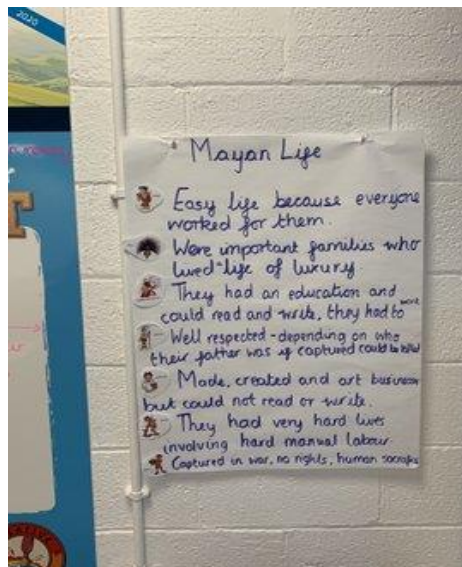 2020
Mayan Life
Easy life because everyone
worked for them.
Were important families who
lived life of luxury
They had an education and
could read and write, they had to work
Well respected - depending on who
their father was if captured could be killed
Made, created and art business
but could not read or write.
They had very hard lives
involving hard manual labour.
Captured in war, no rights, human sacrifice